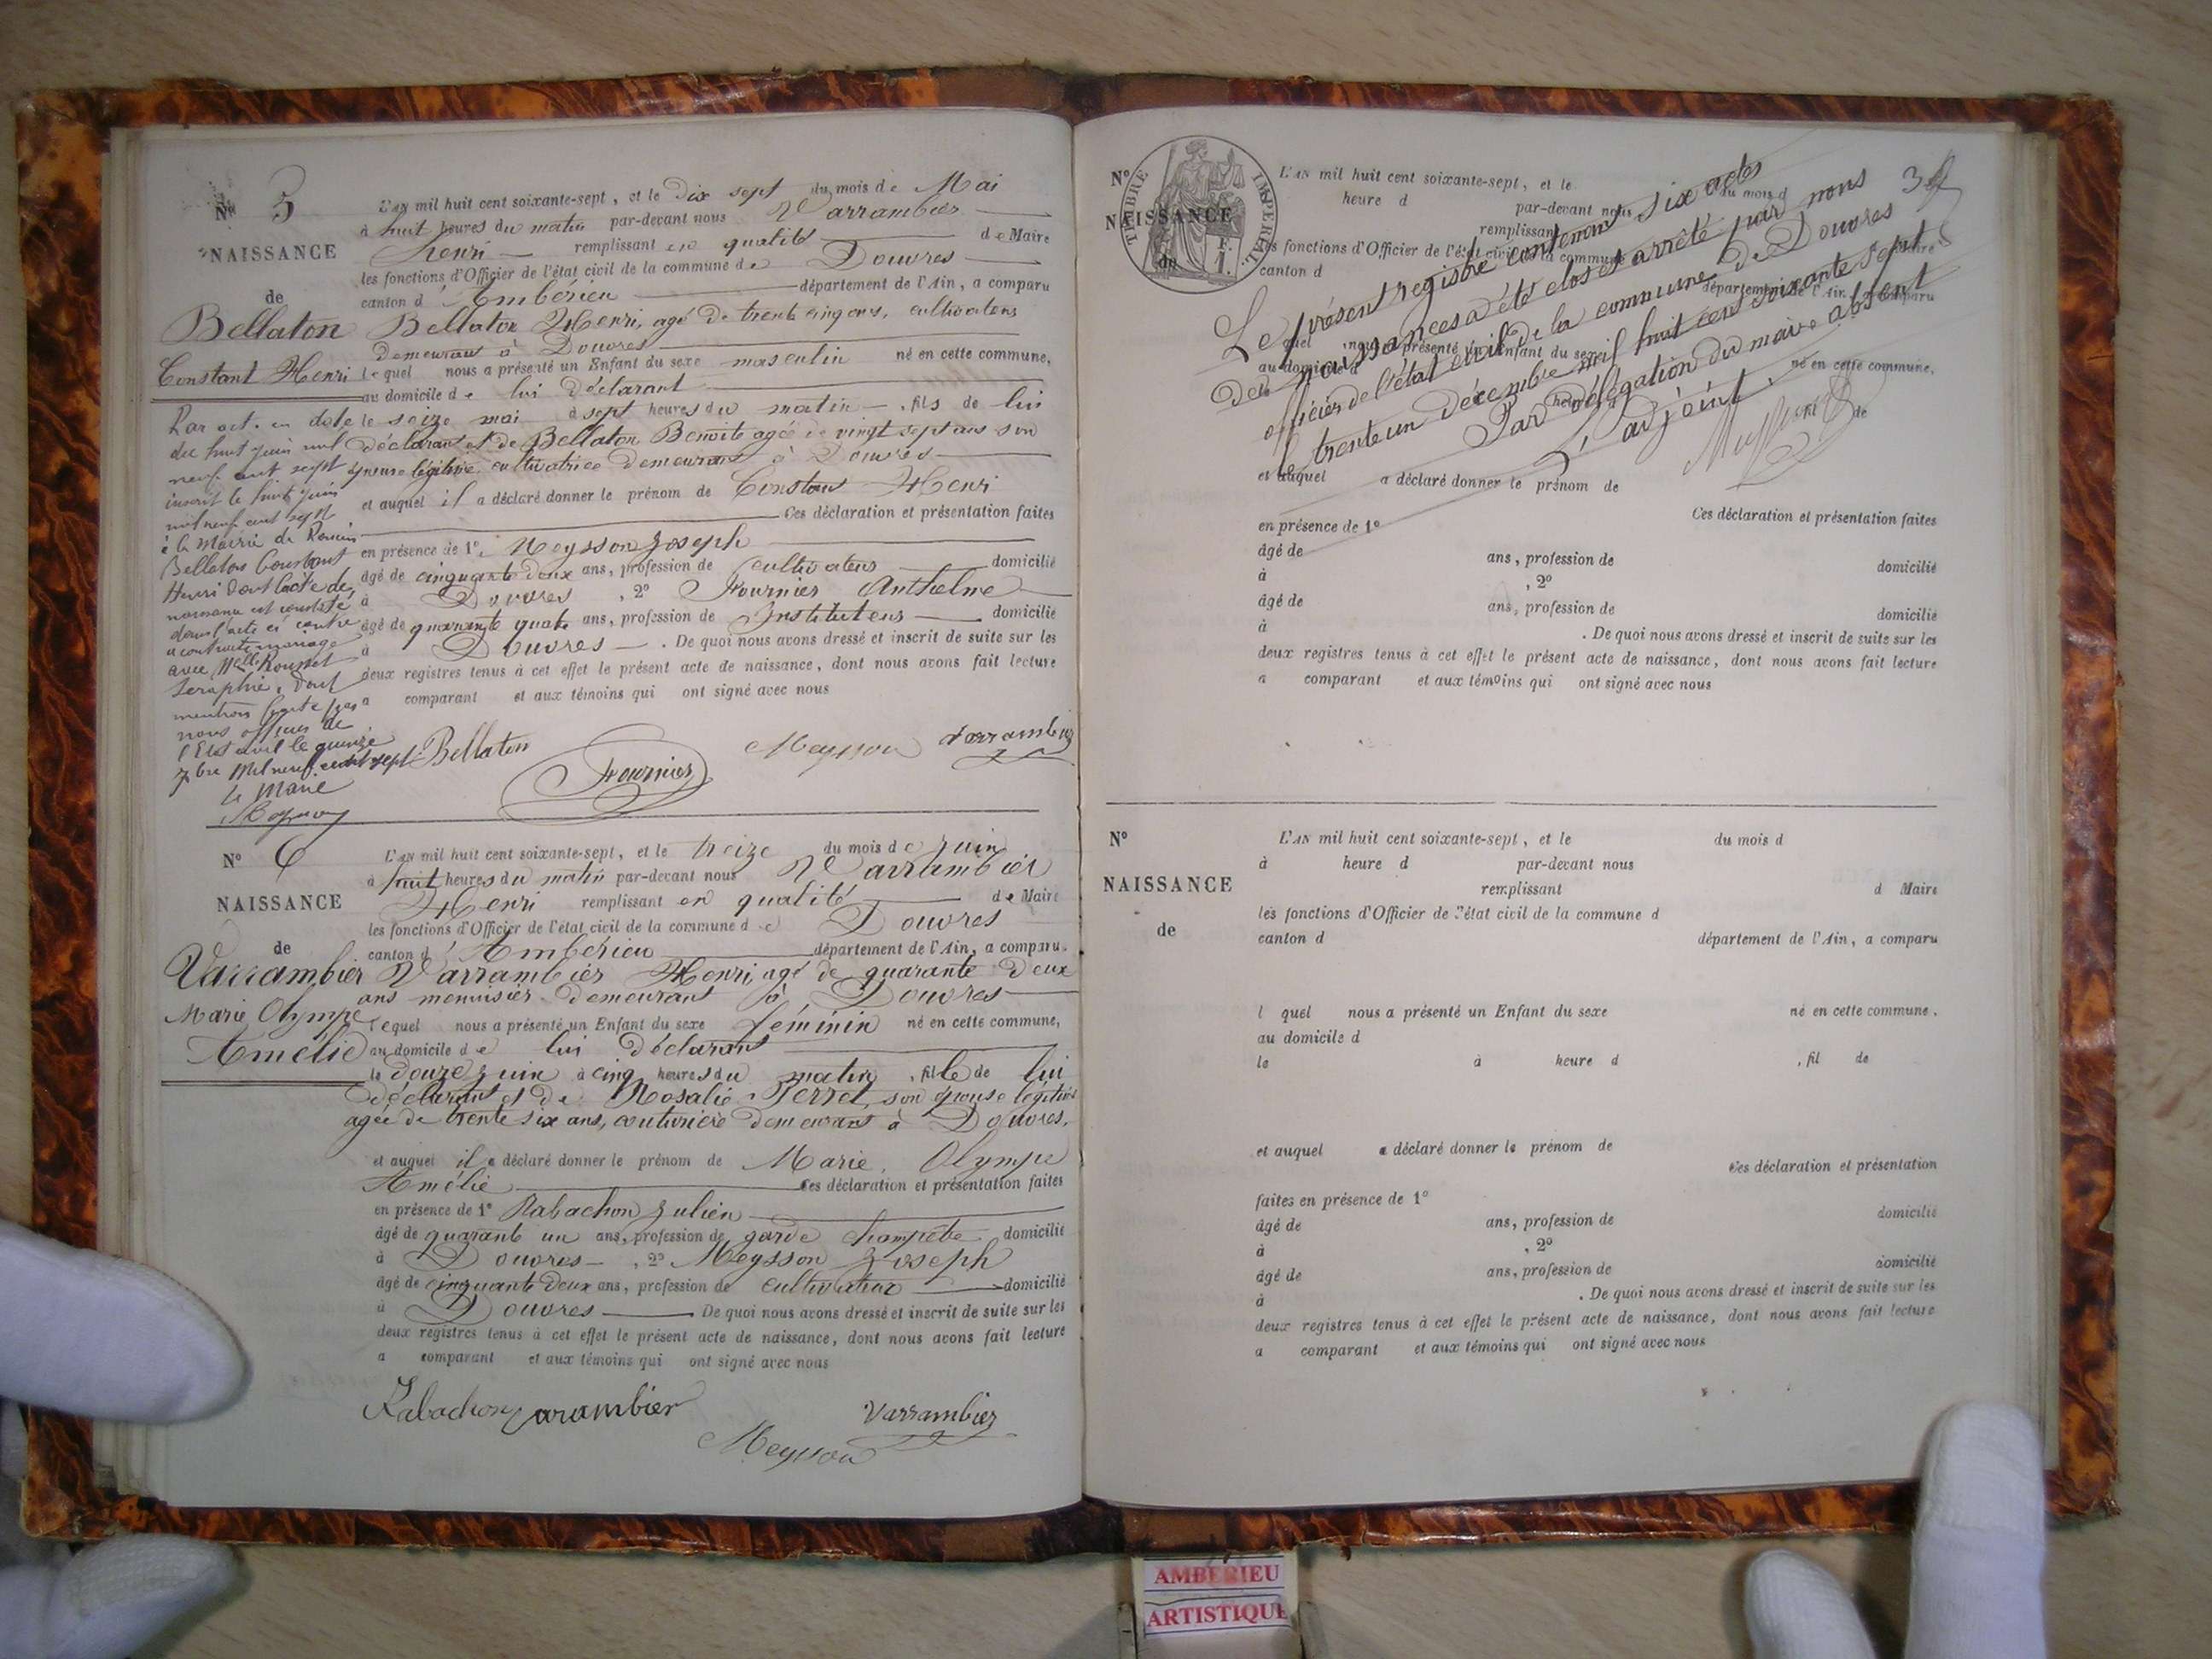 N° 5
NAISSANCE
de
Bellaton
Constant Henri
L'AN mil huit cent soixante-sept, et le dix sept du mois de Mai
à huit heures du matin par-devant nous Varrambier
henri remplissant en qualité de Maire
les fonctions d'Officier de l'état civil de la commune de Douvres
canton d'Ambérieu département de l'Ain, a comparu
Bellaton Henri, agé de trente cinq ans, cultivateur
demeurant à Douvres
lequel nous a présenté un Enfant du sexe masculin né en cette commune,
au domicile de lui déclarant
le seize mai à sept heures du matin, fils de lui
déclarant et de Bellaton Benoite agée de vingt sept ans son
épouse légitime cultivatrice demeurant à Douvres
et auquel il a déclaré donner le prénom de Constant Henri
Ces déclaration et présentation faites
en présence de 1° Meysson Joseph
âgé de cinquante deux ans, profession de cultivateur domicilié
à Douvres, 2° Fournier Anthelme
âgé de quarante quatre ans, profession de Instituteur domicilié
à Douvres. De quoi nous avons dressé et inscrit de suite sur les
deux registres tenus à cet effet le présent acte de naissance, dont nous avons fait lecture
a comparant et aux témoins qui ont signé avec nous
Bellaton Fournier Meysson Varrambier
Par act. en date
du huit juin mil
neuf cent sept
inscrit le huit juin
mil neuf cent sept
à la Mairie de
Bellaton Constant
Henri dont l'acte de
naissance est constaté
dans l'acte ci contre
a contracté mariage
avec Melle Rousset
Seraphie, dont
mention faite par
nous officier de
l'Etat civil le quinze
7bre Mil neuf cent sept
Le Maire
N° 6
NAISSANCE
de
Varrambier
Marie Olympe
Amélie
L'AN mil huit cent soixante-sept, et le treize du mois de juin
à huit heures du matin par-devant nous Varrambier
Henri remplissant en qualité de Maire
les fonctions d'Officier de l'état civil de la commune de Douvres
canton d'Ambérieu département de l'Ain, a comparu
Varrambier Henri, agé de quarante deux
ans menuisier demeurant à Douvres
lequel nous a présenté un Enfant du sexe féminin né en cette commune,
au domicile de lui déclarant
le douze juin à cinq heures du matin, fille de lui
déclarant et de Rosalie Perret, son épouse légitime
agée de trente six ans, couturière demeurant à Douvres,
et auquel il a déclaré donner le prénom de Marie, Olympe
Amélie Ces déclaration et présentation faites
en présence de 1° Rabachon Julien
âgé de quarante un ans, profession de garde champête domicilié
à Douvres, 2° Meysson Joseph
âgé de cinquante deux ans, profession de cultivateur domicilié
à Douvres De quoi nous avons dressé et inscrit de suite sur les
deux registres tenus à cet effet le présent acte de naissance, dont nous avons fait lecture
a comparant et aux témoins qui ont signé avec nous
Rabachon Varambier Varrambier
Meysson
N°
NAISSANCE
de
TIMBRE IMPERIAL
L'AN mil huit cent soixante-sept, et le du mois d
heure d par-devant nous
remplissant d Maire
les fonctions d'Officier de l'état civil de la commune d
canton d département de l'Ain, a comparu
l quel nous a présenté un Enfant du sexe né en cette commune,
au domicile d
le à heure d, fil de
Le présent registre contenant six actes
de naissances a été clos et arrêté par nous
officier de l'état civil de la commune de Douvres
le trente un décembre mil huit cent soixante sept
Par délégation du maire absent
L'adjoint.
et auquel a déclaré donner le prénom de
Ces déclaration et présentation faites
en présence de 1°
âgé de ans, profession de domicilié
à , 2°
âgé de ans, profession de domicilié
à . De quoi nous avons dressé et inscrit de suite sur les
deux registres tenus à cet effet le présent acte de naissance, dont nous avons fait lecture
a comparant et aux témoins qui ont signé avec nous
N°
NAISSANCE
de
L'AN mil huit cent soixante-sept, et le du mois d
à heure d par-devant nous
remplissant d Maire
les fonctions d'Officier de l'état civil de la commune d
canton d département de l'Ain, a comparu
l quel nous a présenté un Enfant du sexe né en cette commune,
au domicile d
le à heure d , fil de
et auquel a déclaré donner le prénom de
Ces déclaration et présentation
faites en présence de 1°
âgé de ans, profession de domicilié
à , 2°
âgé de ans, profession de domicilié
à . De quoi nous avons dressé et inscrit de suite sur les
deux registres tenus à cet effet le présent acte de naissance, dont nous avons fait lecture
a comparant et aux témoins qui ont signé avec nous
AMBERIEU
ARTISTIQUE